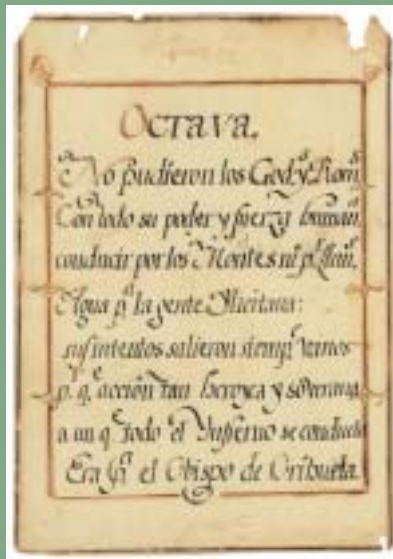 Octava.
No pudieron los God.s y Rom.s
Con todo su poder y fuerza human.
conducir por los Montes ni p.r llan.s
Agua p.a la gente Ilicitana:
sus intentos salieron siemp.e vanos
p.r q.e acción tan heroyca y soverana
a un q.e todo el Infierno se conduela
Era p.a el Obispo de Orihuela.